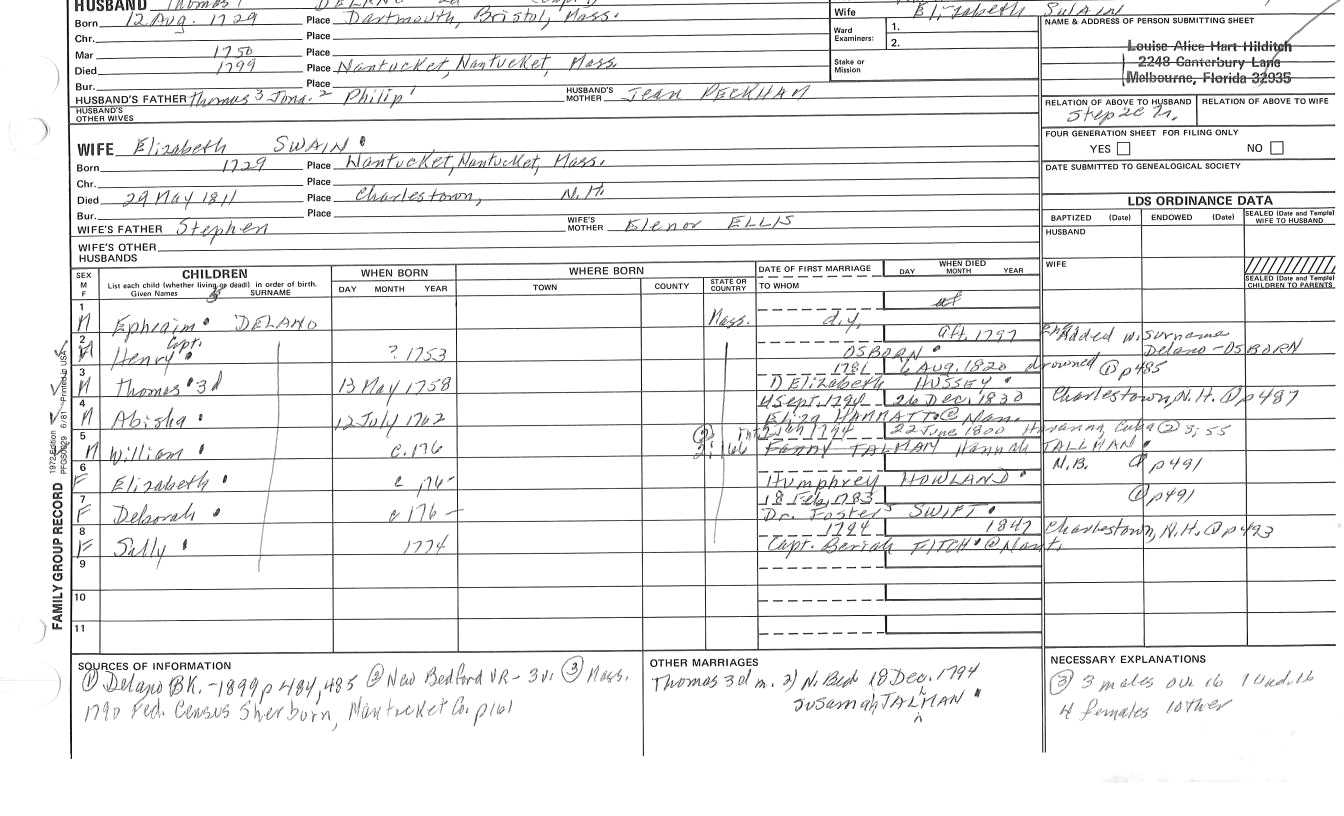 HUSBAND Thomas
Born 12 Aug. 1729 Place Dartmouth, Bristol, Mass.
Chr. Place
Mar 1750 Place
Died 1799 Place Nantucket, Nantucket, Mass
Bur. Place
HUSBAND'S FATHER Thomas 3 Jona. 2 Philip 1 HUSBAND'S MOTHER Jean PECKHAM
HUSBAND'S OTHER WIVES
Wife Elizabeth Swain
Ward Examiners: 1.
2.
Stake or Mission
NAME & ADDRESS OF PERSON SUBMITTING SHEET
Louise Alice Hart Hilditch
2248 Canterbury Lane
Melbourne, Florida 32935
RELATION OF ABOVE TO HUSBAND RELATION OF ABOVE TO WIFE
FOUR GENERATION SHEET FOR FILING ONLY
YES NO
DATE SUBMITTED TO GENEALOGICAL SOCIETY
WIFE Elizabeth SWAIN
Born 1729 Place Nantucket, Nantucket, Mass.
Chr. Place
Died 29 May 1811 Place Charlestown, N.H.
Bur. Place
WIFE'S FATHER Stephen WIFE'S MOTHER Elenor ELLIS
WIFE'S OTHER HUSBANDS
LDS ORDINANCE DATA
BAPTIZED (Date) ENDOWED (Date) SEALED (Date and Temple) WIFE TO HUSBAND
HUSBAND
WIFE
SEALED (Date and Temple) CHILDREN TO PARENTS
SEX M F CHILDREN WHEN BORN WHERE BORN DATE OF FIRST MARRIAGE WHEN DIED
List each child (whether living or dead) in order of birth.
Given Names SURNAME DAY MONTH YEAR TOWN COUNTY STATE OR COUNTRY TO WHOM DAY MONTH YEAR
1 M Ephraim DELANO Mass. d.y.
2 M Capt. Henry ? 1753 OSBORN aft. 1797 Added w. surname
Delano-OSBORN
3 M Thomas 3d 13 May 1758 1781 6 Aug. 1820 drowned ① p485
1) Elizabeth HUSSEY
4 M Abisha 12 July 1762 4 Sept. 1794 26 Dec. 1830 Charlestown, N.H. ① p487
5 M William c. 176 22 June 1800 Havanna, Cuba ② 3:55
Fanny TALMAN Hannah TALLMAN
6 F Elizabeth c 176- Humphrey HOWLAND N.B. ① p491
7 F Deborah c 176- 18 Feb. 1783 ① p491
Dr. Foster SWIFT
8 F Sally 1774 1794 1847 Charlestown, N.H. ① p493
Capt. Beriah FITCH @ Nant.
9
10
11
FAMILY GROUP RECORD 1972 Edition PFGS0029 6/81 Printed in USA
SOURCES OF INFORMATION
① Delano BK. -1899 p 484, 485 ② New Bedford VR - 3v. ③ Mass.
1790 Fed. Census Sherburn, Nantucket Co. p161
OTHER MARRIAGES
Thomas 3d m. 2) N. Bed 18 Dec. 1794
Susannah TALMAN
NECESSARY EXPLANATIONS
③ 3 males ov. 16 1 und. 16
4 females 1 other